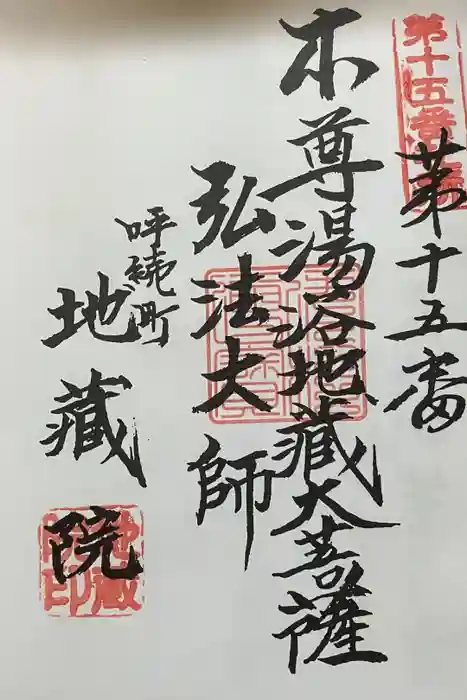 第十五番
第十五番
本尊湯浴地蔵大菩薩
弘法大師
呼続町
地蔵
院
地蔵院印